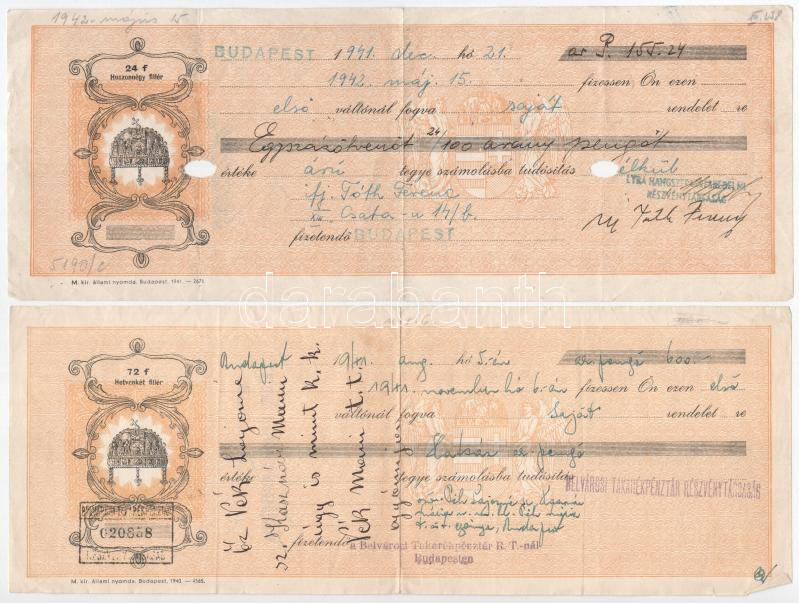 1942. május 15
24 f
Huszonnégy fillér
BUDAPEST 1941. dec. hó 21. ar P. 155.24
1942. máj. 15. fizessen Ön ezen
első váltónál fogva saját rendelet re
Egyszázötvenöt 24/100 arany pengőt
értéke árú tegye számolásba tudósítás nélkül
ifj. Tóth Ferenc
LYRA HANGSZERKERESKEDELMI
RÉSZVÉNYTÁRSASÁG
XIII. Csata-u 14/b.
ifj Tóth Ferenc
fizetendő BUDAPEST
5190/c
M. kir. állami nyomda. Budapest, 1941. — 2671.
darabanth
72 f
Hetvenkét fillér
Budapest 1941 aug. hó 5-én ar pengő 600.-
1941. november hó 6-án fizessen Ön ezen első
váltónál fogva Saját rendelet re
Hatszáz ar. pengő
értéke tegye számolásba tudósítás
BELVÁROSI TAKARÉKPÉNZTÁR RÉSZVÉNYTÁRSASÁG
020858
Budapest
fizetendő
a Belvárosi Takarékpénztár R. T.-nál
Budapesten
özv Pék Lajosné
sz. Hasznós Mami
úgy is mint k. k.
Pék Mami t. t.
M. kir. állami nyomda. Budapest, 1940. — 4565.